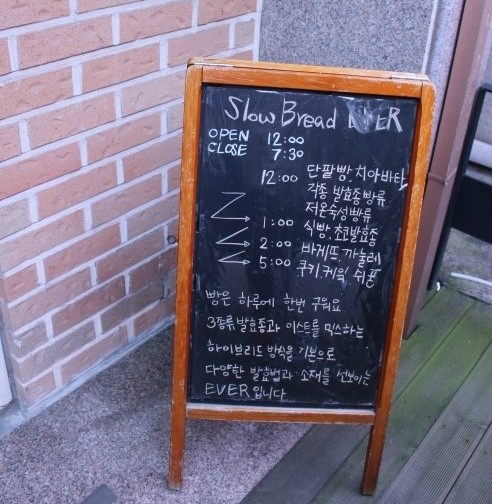 Slow Bread EVER
OPEN 12:00
CLOSE 7:30
12:00 단팥빵, 치아바타
각종 발효종빵류
저온숙성빵류
1:00 식빵, 초코발효종
2:00 바게뜨, 까눌레
5:00 쿠키, 케잌, 쉬폰
빵은 하루에 한번 구워요
3종류 발효종과 이스트를 믹스하는
하이브리드 방식을 기본으로
다양한 발효법과 소재를 선보이는
EVER입니다